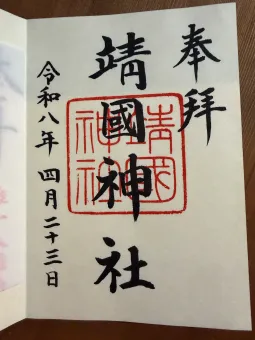 奉拝
靖國神社
靖國神社
令和八年 四月二十三日